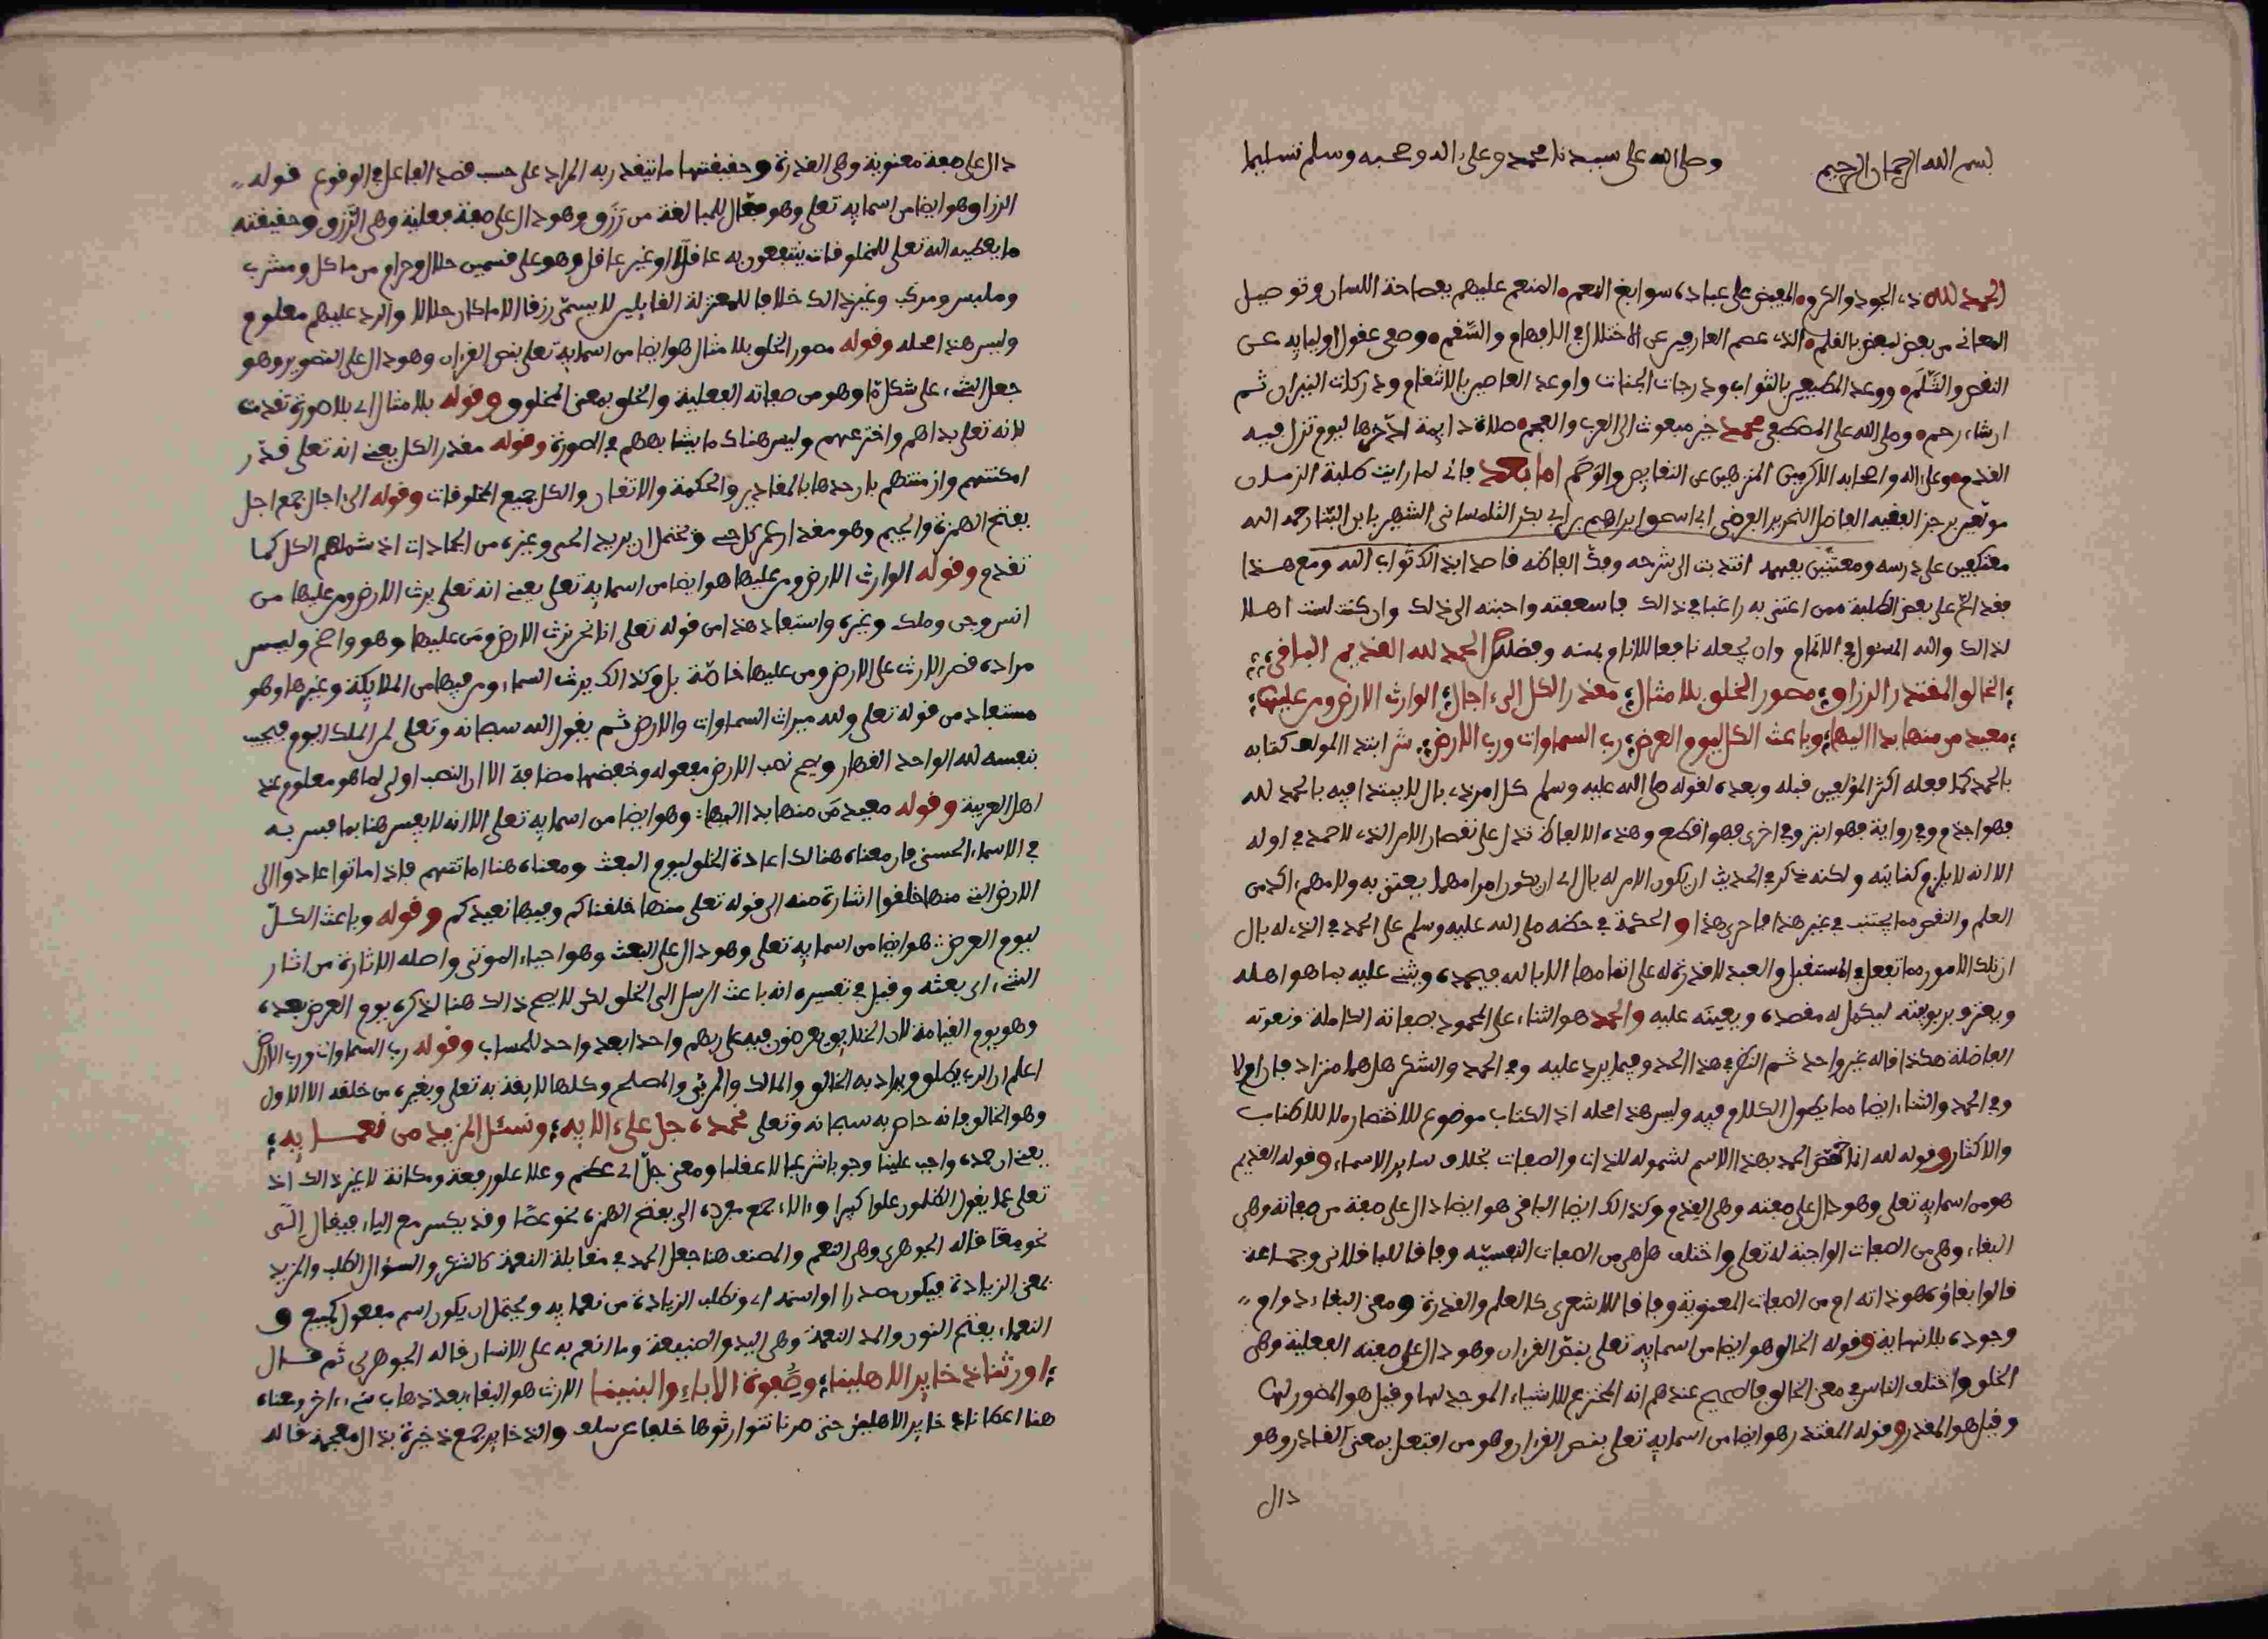 بسم الله الرحمان الرحيم وصلى الله على سيدنا محمد وعلى ءاله وصحبه وسلم تسليما
الحمد لله ذي الجود والكرم المفيض على عباده سوابغ النعم المنعم عليهم بفصاحة اللسان وتوصيل
المعاني من بعض لبعض بالقلم الذي عصم العارفين عن الاختلال في الافهام والسقم وصفى عقول اوليايه عن
النقص والثلم ووعد المطيعين بالثواب ودرجات الجنات واوعد العاصين بالانتقام ودركات النيران ثم
ان شاء رحم وصلى الله على المصطفى محمد خير مبعوث الى العرب والعجم صلاة دايمة ادخرها ليوم تزل فيه
القدم وعلى اله واصحابه الاكرمين المنزهين عن النقايص والوصم اما بعد فاني لما رايت طلبة الزمان
مولعين برجز الفقيه الفاضل النحرير الفرضي ابي اسحق ابراهيم بن ابي بكر التلمساني الشهير بابن رحمه الله
معتكفين على درسه ومعتنين بفهمه انتدبت الى شرحه وفك الفاظه قاصدا بذالك ثواب الله ومع هذا
فقد الح على بعض الطلبة ممن اعتنى به راغبا في ذالك فاسعفته واجبته الى ذلك وان كنت لست اهلا
لذالك والله المسئول في الاتمام وان يجعله نافعا للانام بمنه وفضله الحمد لله القديم الباقي
الخالق المقتدر الرزاق مصور الخلق بلا مثال مقدر الكل الى اجال الوارث الارض ومن عليها
معيد من منها بدا اليها وباعث الكل ليوم العرض رب السماوات ورب الارض ش ابتدا المولف كتابه
بالحمد كما فعله اكثر المؤلفين قبله وبعده لقوله صلى الله عليه وسلم كل امر ذي بال لا يبتدا فيه بالحمد لله
فهو اجذم وفي رواية فهو ابتر وفي اخرى فهو اقطع وهذه الالفاظ تدل على نقصان الامر الذي لا حمد في اوله
الا انه لا يلزم كتابته ولكنه ذكر في الحديث ان يكون الامر له بال اي ان يكون امرا مهما يعتنى به ولا مهم اكد من
العلم والنقص مما يجتنب في غير هذا فاحرى هذا والحكمة في حضه صلى الله عليه وسلم على الحمد في الذي له بال
ان تلك الامور مما تفعل في المستقبل والعبد لا قدرة له على اتمامها الا بالله فيحمده ويثني عليه بما هو اهله
ويعترف بربوبيته ليكمل له مقصده ويعينه عليه والحمد هو الثناء على المحمود بصفاته الكاملة ونعوته
الفاضلة هكذا قاله غير واحد ثم النظر في هذا الحد وفيما يرد عليه وفي الحمد والشكر هل هما مترادفان ام لا
وفي الحمد والثناء ايضا مما يطول الكلام فيه وليس هذا محله اذ الكتاب موضوع للاختصار لا للاطناب
والاكثار وقوله لله انما خص الحمد بهذا الاسم لشموله للذات والصفات بخلاف ساير الاسماء وقوله القديم
هو من اسمايه تعلى وهو دال على صفته وهي القدم وكذالك ايضا الباقي هو ايضا دال على صفة من صفاته وهي
البقاء وهي من الصفات الواجبة له تعلى واختلف هل هي من الصفات النفسية وفاقا للباقلاني وجماعة
قالوا بقاؤه هو ذاته او من الصفات المعنوية وفاقا للاشعري كالعلم والقدرة ومعنى البقاء دوام
وجوده بلا نهاية وقوله الخالق هو ايضا من اسمايه تعلى بنص القران وهو دال على صفته الفعلية وهي
الخلق واختلف الناس في معنى الخالق فالصحيح عندهم انه المخترع للاشياء الموجد لها وقيل هو المصور لها
وقيل هو المقدر وقوله المقتدر هو ايضا من اسمايه تعلى بنص القران وهو من افتعل بمعنى القادر وهو
دال
دال على صفة معنوية وهي القدرة وحقيقتها ما يتقدر به المراد على حسب قصد الفاعل في الوقوع قوله
الرزاق هو ايضا من اسمايه تعلى وهو فعال للمبالغة من رزق وهو دال على صفة فعلية وهي الرزق وحقيقته
ما يعطيه الله تعلى للمخلوقات ينتفعون به عاقلا او غير عاقل وهو على قسمين حلال وحرام من ماكل ومشرب
وملبس ومركب وغير ذالك خلافا للمعتزلة القايلين لا يسمى رزقا الا ما كان حلالا والرد عليهم معلوم
وليس هذا محله وقوله مصور الخلق بلا مثال هو ايضا من اسمايه تعلى بنص القران وهو دال على التصوير وهو
جعل الشيء على شكل ما وهو من صفاته الفعلية والخلق بمعنى المخلوق وقوله بلا مثال اي بلا صورة تقدمت
لانه تعلى بداهم واخترعهم وليس هناك ما يشابههم في الصورة وقوله مقدر الكل يعني انه تعلى قدر
امكنتهم وازمنتهم بان حدها بالمقادير والحكمة والاتقان والكل جميع المخلوقات وقوله الى اجال جمع اجل
بفتح الهمزة والجيم وهو مقدار عمر كل حي ويحتمل ان يريد الحي وغيره من الجمادات اذ شملهم الكل كما
تقدم وقوله الوارث الارض ومن عليها هو ايضا من اسمايه تعلى يعني انه تعلى يرث الارض ومن عليها من
انس وجن وملك وغيره واستفاد هذا من قوله تعلى انا نحن نرث الارض ومن عليها وهو واضح وليس
مراده قصر الارث على الارض ومن عليها خاصة بل وكذالك يرث السماء ومن فيها من الملايكة وغيرها وهو
مستفاد من قوله تعلى ولله ميراث السماوات والارض ثم يقول الله سبحانه وتعلى لمن الملك اليوم فيجيب
بنفسه لله الواحد القهار ويصح نصب الارض مفعوله وخفضها مضافة الا ان النصب اولى لما هو معلوم عند
اهل العربية وقوله معيد من منها بدا اليها وهو ايضا من اسمايه تعلى الا انه لا يفسر هنا بما فسر به
في الاسماء الحسنى فان معناه هنالك اعادة الخلق ليوم البعث ومعناه هنا اماتتهم فاذا ماتوا عادوا الى
الارض التي منها خلقوا اشارة منه الى قوله تعلى منها خلقناكم وفيها نعيدكم وقوله وباعث الكل
ليوم العرض هو ايضا من اسمايه تعلى وهو دال على البعث وهو احياء الموتى واصله الاثارة من اثار
الشيء اي بعثه وقيل في تفسيره انه باعث الرسل الى الخلق لكن لا يصح ذالك هنا لذكره يوم العرض بعده
وهو يوم القيامة لان الخلايق يعرضون فيه على ربهم واحدا بعد واحد للحساب وقوله رب السماوات ورب الارض
اعلم ان الرب يطلق ويراد به الخالق والمالك والمربي والمصلح وكلها لايقة به تعلى وبغيره من خلقه الا الاول
وهو الخالق فانه خاص به سبحانه وتعلى نحمده جل على الايه ونسئل المزيد من نعمايه
يعني ان حمده واجب علينا وجوبا شرعيا لا عقليا ومعنى جل اي عظم وعلا علو رفعة ومكانة لا غير ذالك اذ
تعلى عما يقول الظلمون علوا كبيرا والاء جمع مفرده الى بفتح الهمزه نحو عصا وقد يكسر مع الياء فيقال الى
نحو معا قاله الجوهري وهي النعم والمصنف هنا جعل الحمد في مقابلة النعمة كالشكر والسؤال الطلب والمزيد
بمعنى الزيادة فيكون مصدرا او اسمه اي ونطلب الزيادة من نعمايه ويحتمل ان يكون اسم مفعول كمبيع و
النعماء بفتح النون والمد النعمة وهي اليد والصنيعة وما انعم به على الانسان قاله الجوهري ثم قال
اورثنا ذخاير الاهلينا وصفوة الاباء والبنينا الارث هو البقاء بعد ذهاب شيء ءاخر ومعناه
هنا اعطانا ذخاير الاهلين حتى صرنا نتوارثوها خلفا عن سلف والذخاير جمع ذخيرة بذال معجمة قاله